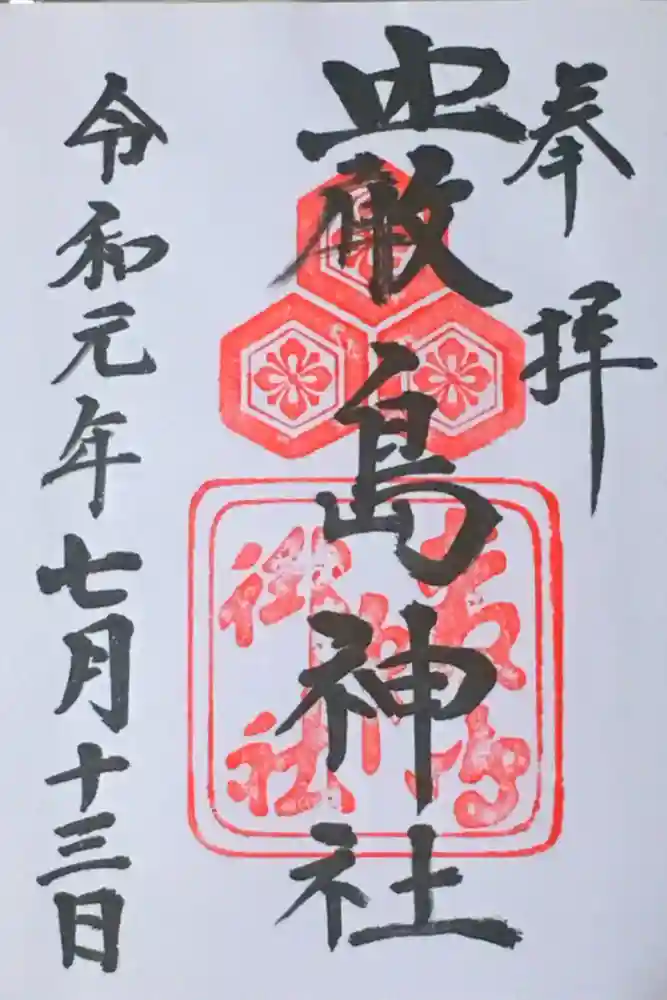 奉拝
嚴島神社
令和元年七月十三日